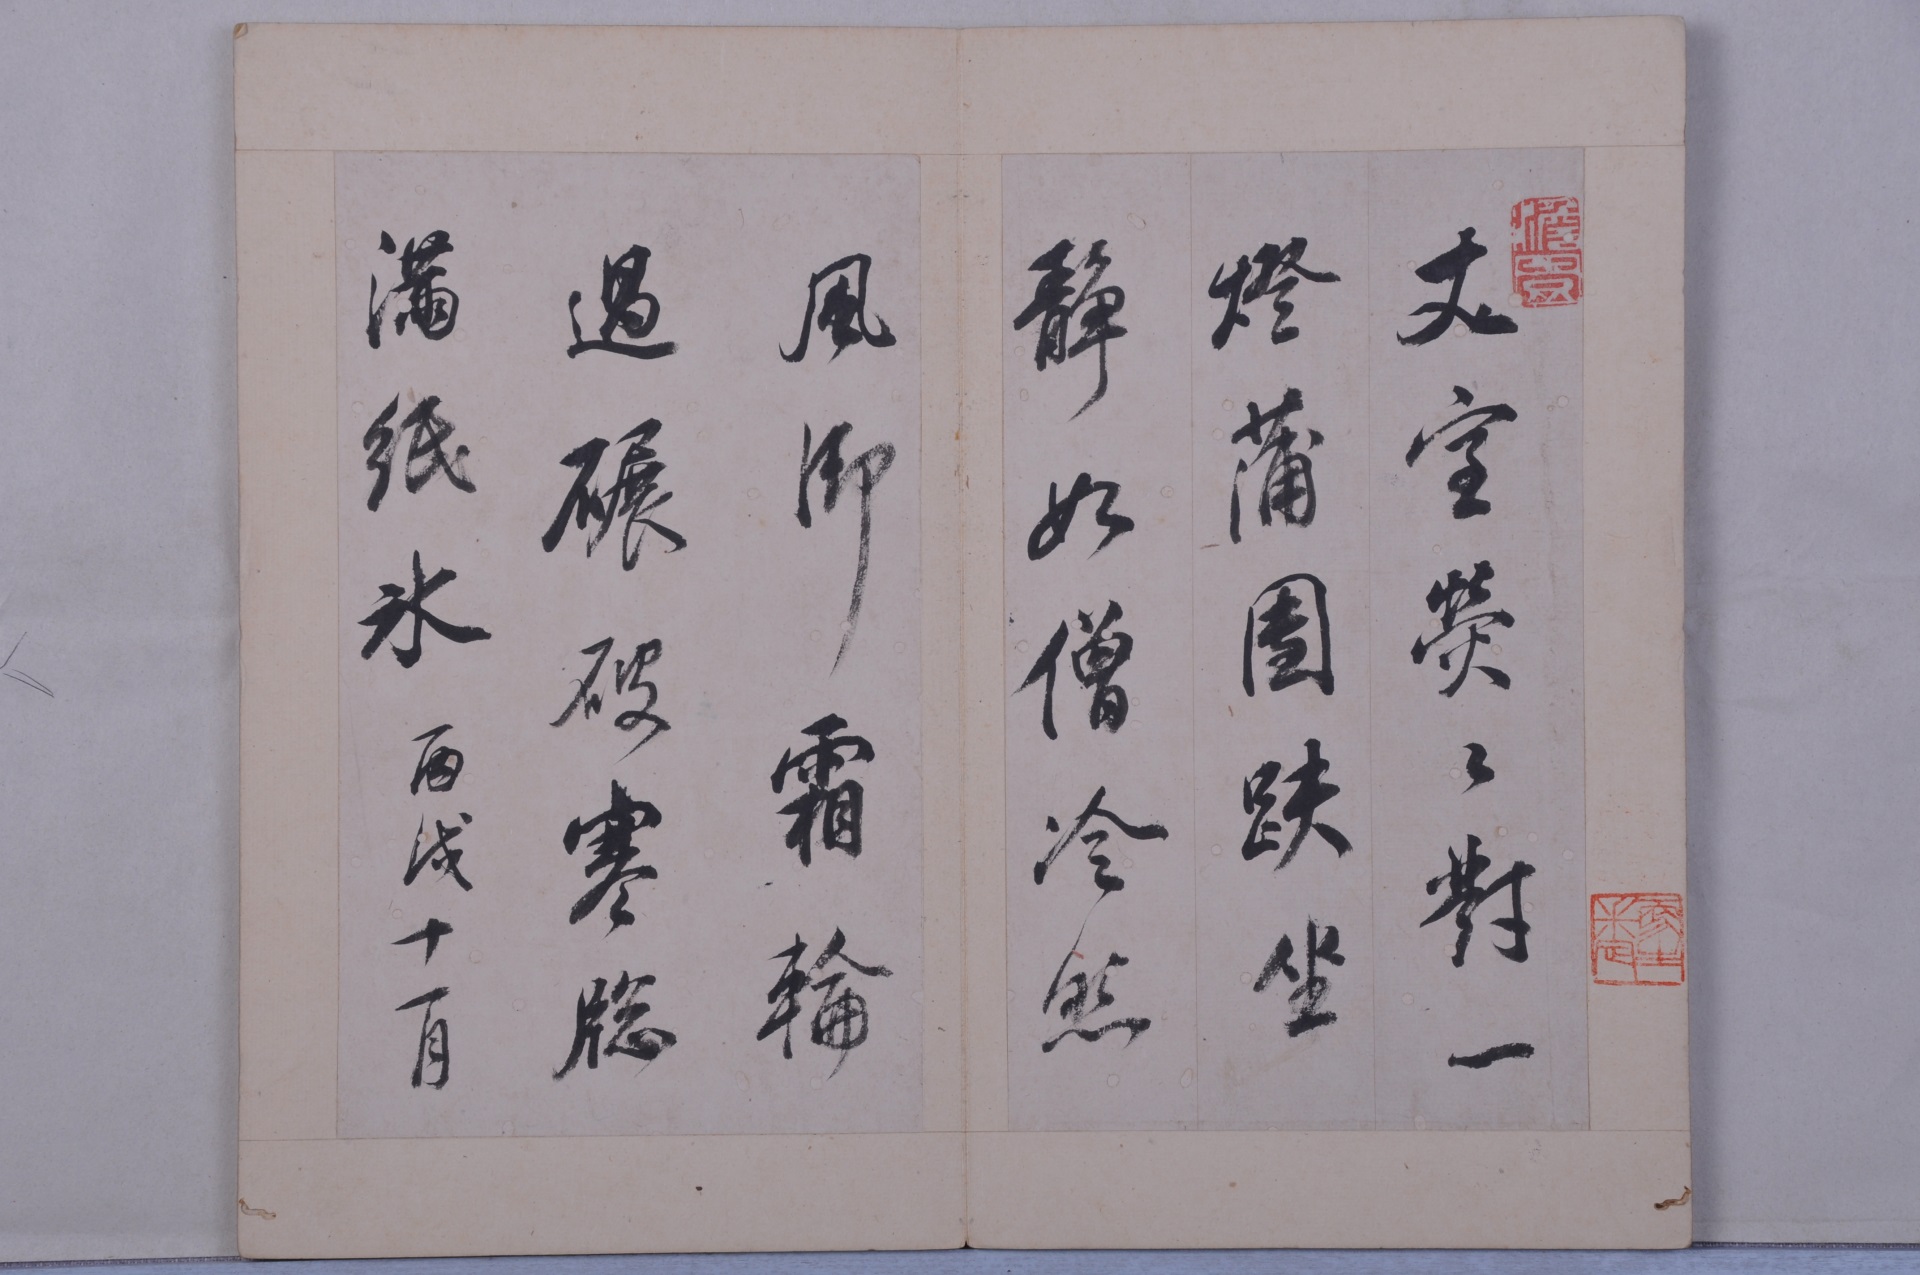 丈室熒々對一
燈蒲團趺坐
靜如僧冷然
風御霜輪
過碾破寒牕
滿紙氷丙戌十一月